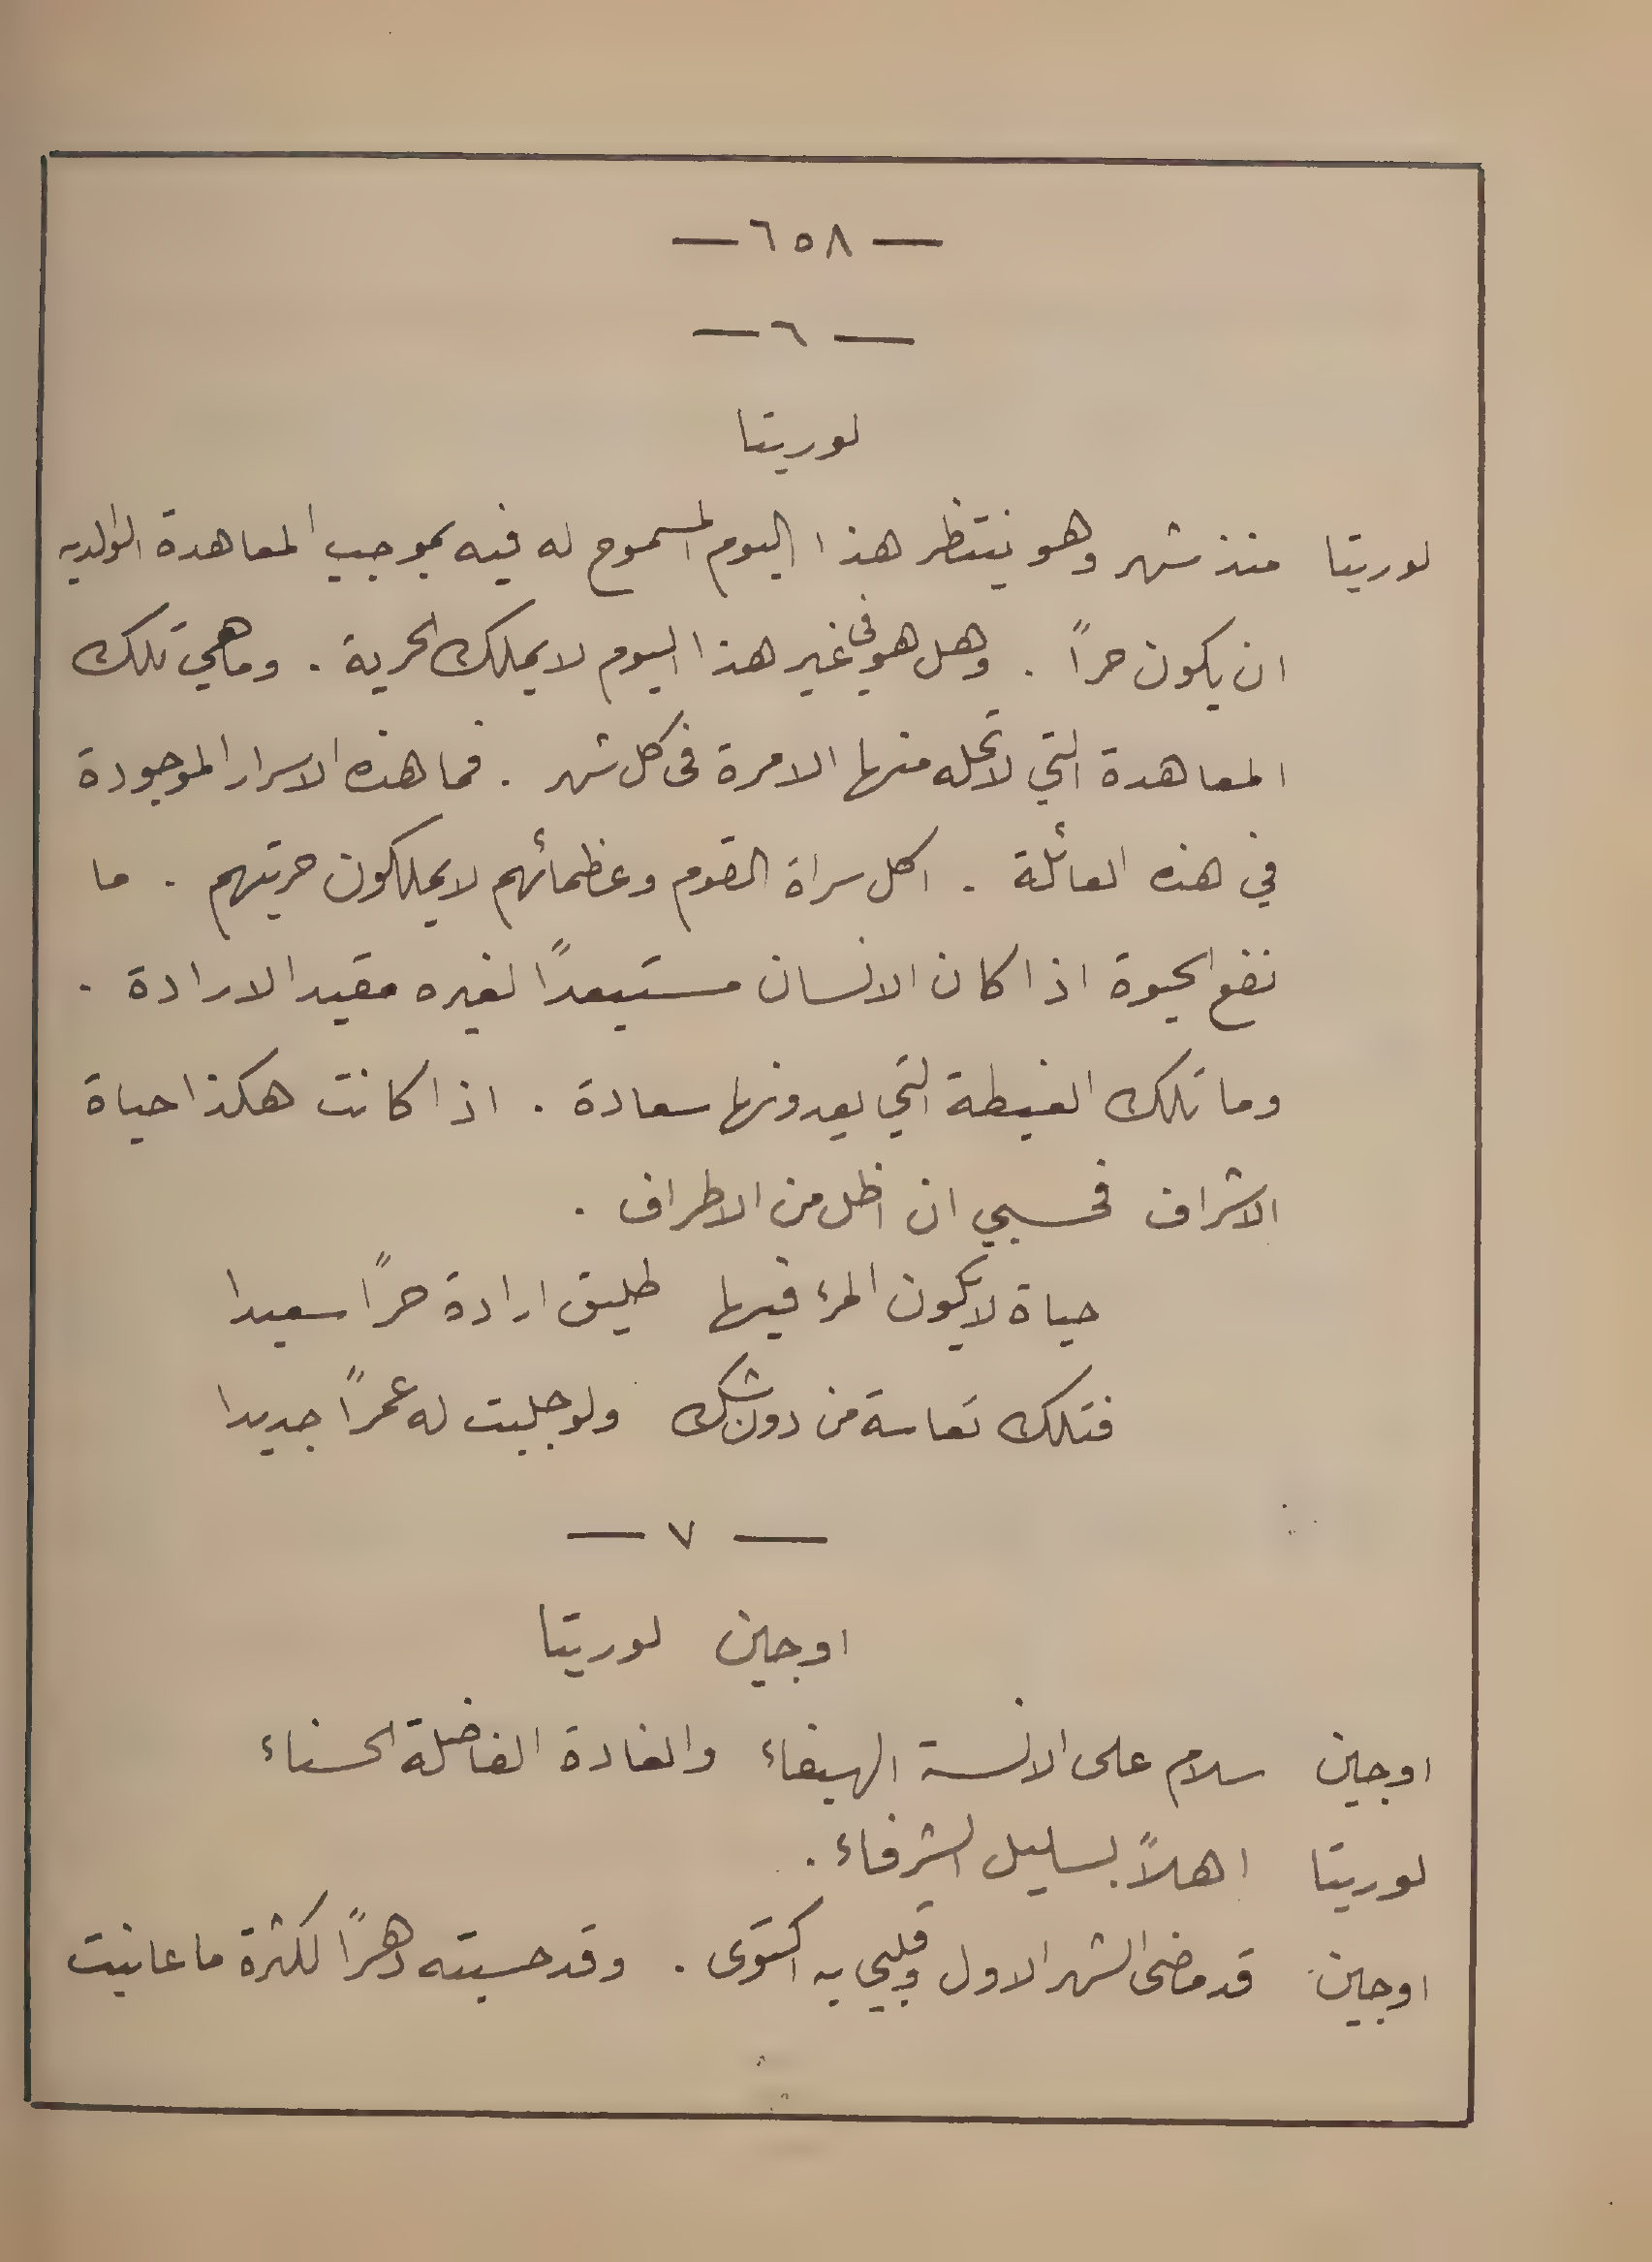 — ٦٥٨ —
— ٦ —
لوريتا
لوريتا منذ شهر وهو ينتظر هذا اليوم المسموح له فيه بموجب المعاهدة الوالديه
ان يكون حراً . وهل هو فى غير هذا اليوم لا يملك الحرية . وما هي تلك
المعاهدة التي لا تحله منها الا مرة فى كل شهر . فما هذه الاسرار الموجودة
في هذه العائلة . اكل سراة القوم وعظمائهم لا يملكون حريتهم . ما
نفع الحيوة اذا كان الانسان مستبعدًا لغيره مقيد الارادة .
وما تلك الغبطة التي يعدونها سعادة . اذا كانت هكذا حياة
الاشراف فحسبي ان اظل من الاطراف .
حياة لا يكون المرء فيها طليق ارادة حرًا سعيدا
فتلك تعاسة من دون شك ولو جلبت له عمرًا جديدا
— ٧ —
اوجين لوريتا
اوجين سلام على الانسة الهيفاء والغادة الفاضلة الحسناء
لوريتا اهلاً بسليل الشرفاء .
اوجين قد مضى الشهر الاول وقلبي به اكتوى . وقد حسبته دهرًا لكثرة ما عانيت